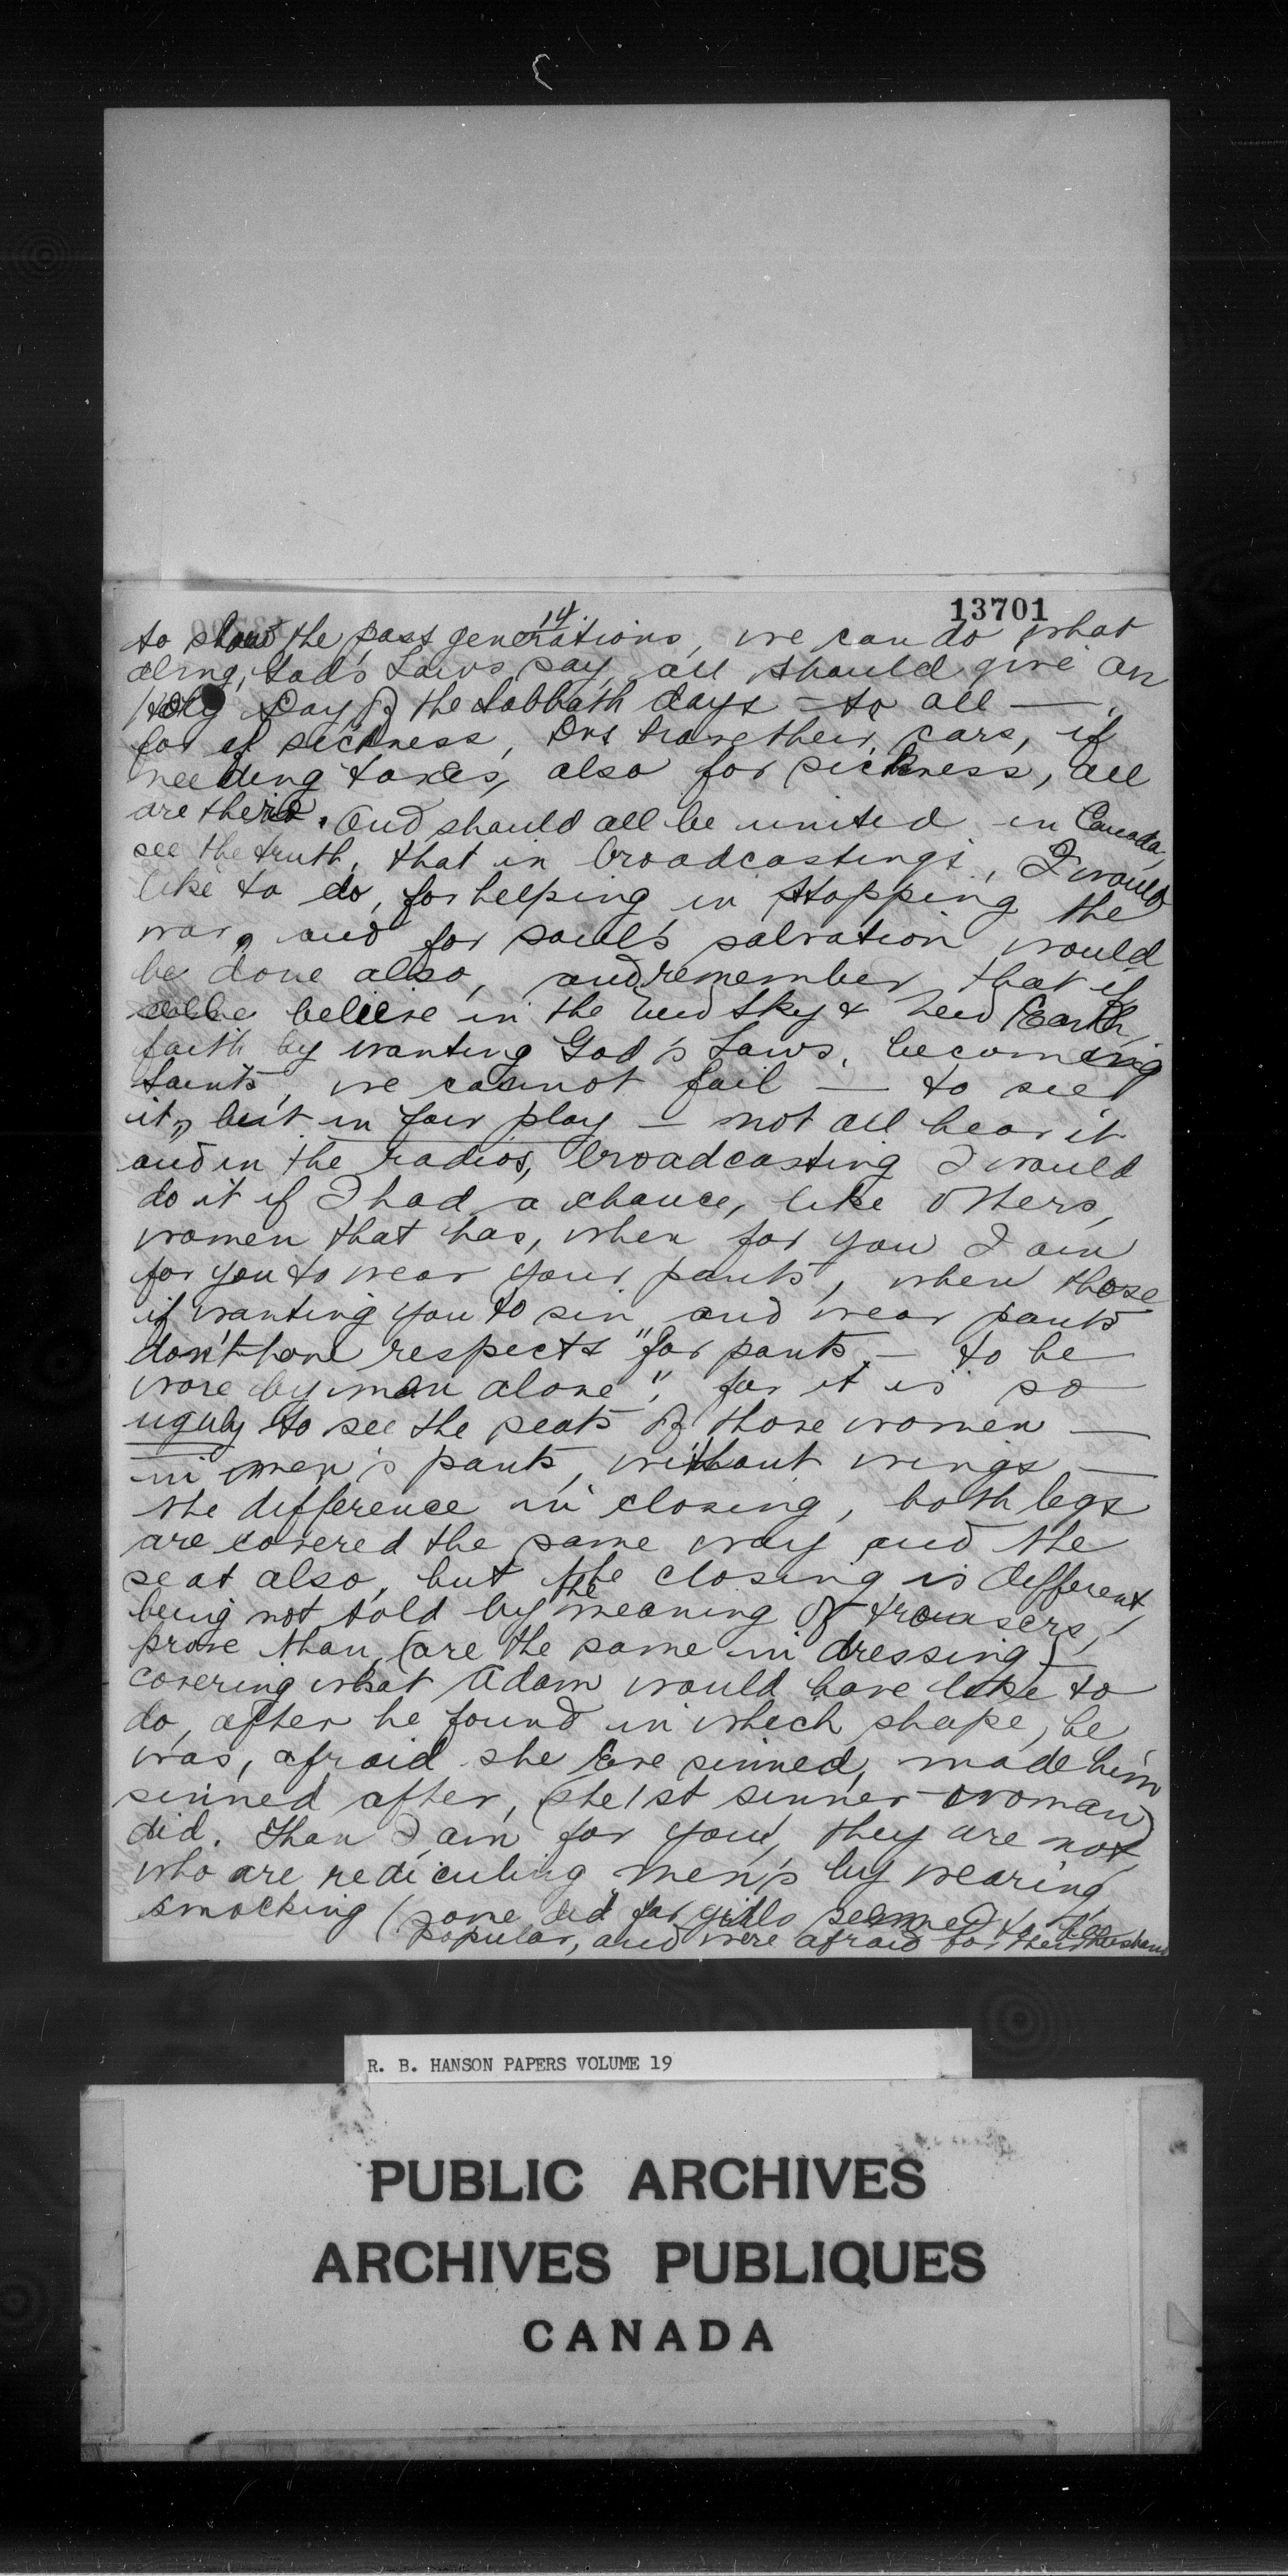 13701
14.
to show the past generations, we can do what
God's Laws say, all should give an
Holy Day of the Sabbath days — to all —.
for if sickness, Drs have their cars, if
needing taxies, also for sickness, all
are there. And should all be united in Canada,
see the truth, that in broadcastings, I would
like to do, for helping in stopping the
war, and for soul's salvation would
be done also, and remember that if
believe in the New Sky & New Earth,
faith by wanting God's Laws, becoming
Saints, we cannot fail — to see
it, but in fair play — not all hear it
and in the radios, broadcasting I would
do it if I had a chance, like others,
women that has, when for you I am
for you to wear your pants, when those
if wanting you to sin and wear pants
don't have respects "for pants — to be
wore by man alone", for it is so
uguly to see the seats of those women —
in men's pants, without wings —
the difference in closing, both legs
are covered the same way and the
seat also, but the closing is different,
being not told by the meaning of trousers,
prove than, (are the same in dressing) —
covering what Adam would have like to
do, after he found in which shape, he
was, afraid she Eve sinned, made him
sinned after, (the 1st sinner woman)
did. Than I am for you, they are not,
who are rediculing men's by wearing,
smocking (some did for girls seemed to be
popular, and were afraid for their husband
R. B. HANSON PAPERS VOLUME 19
PUBLIC ARCHIVES
ARCHIVES PUBLIQUES
CANADA